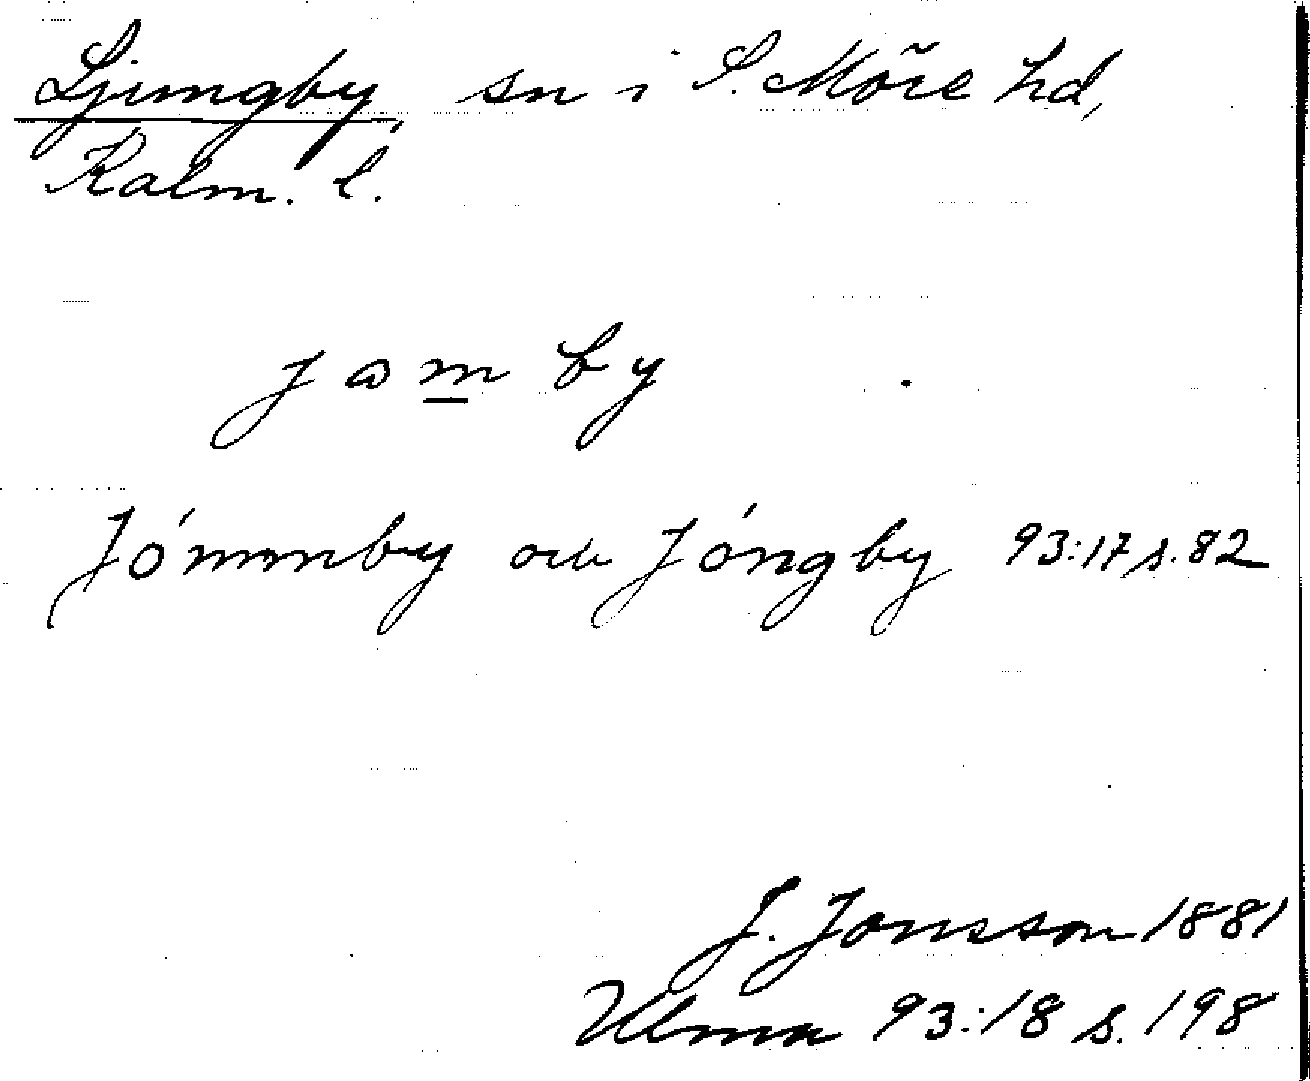 Ljungby, sn i S. Möre hd,
Kalm. l.
jɷm̲by
Jómmby och Jóngby 93:17 s. 82
J. Jonsson 1881
Ulma 93:18 s. 198